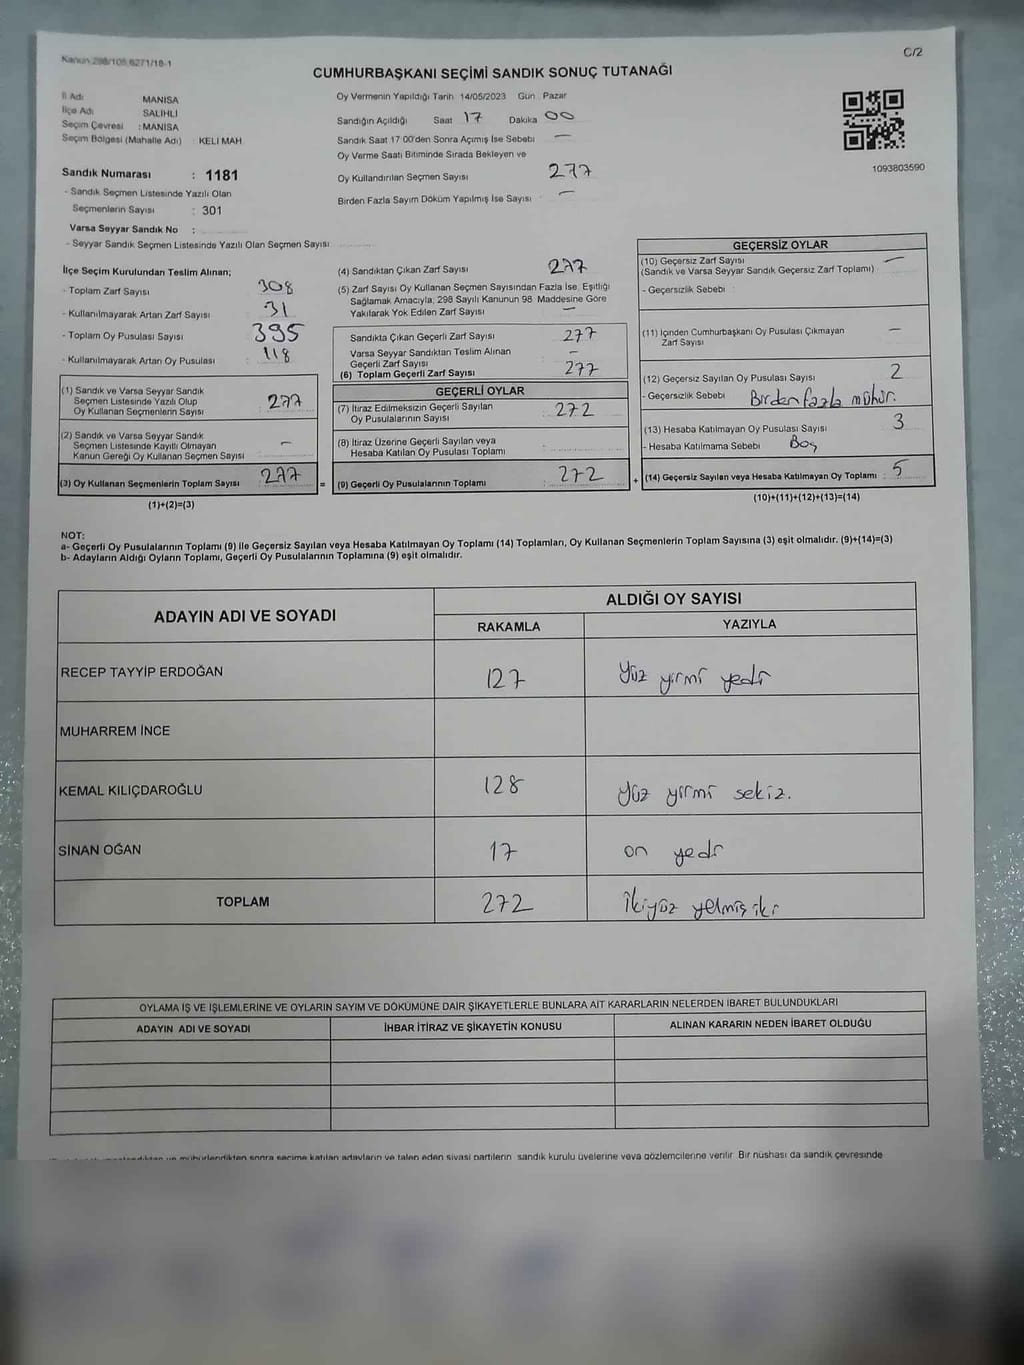 Kanun 298/105,6271/18-1
C/2
CUMHURBAŞKANI SEÇİMİ SANDIK SONUÇ TUTANAĞI
İl Adı MANİSA
İlçe Adı SALİHLİ
Seçim Çevresi : MANİSA
Seçim Bölgesi (Mahalle Adı) : KELİ MAH
Sandık Numarası : 1181
- Sandık Seçmen Listesinde Yazılı Olan
Seçmenlerin Sayısı : 301
Varsa Seyyar Sandık No :
- Seyyar Sandık Seçmen Listesinde Yazılı Olan Seçmen Sayısı
Oy Vermenin Yapıldığı Tarih 14/05/2023 Gün Pazar
Sandığın Açıldığı Saat 17 Dakika 00
Sandık Saat 17 00'den Sonra Açımış İse Sebebi —
Oy Verme Saati Bitiminde Sırada Bekleyen ve
Oy Kullandırılan Seçmen Sayısı 277
Birden Fazla Sayım Döküm Yapılmış İse Sayısı —
1093803590
İlçe Seçim Kurulundan Teslim Alınan;
- Toplam Zarf Sayısı : 308
- Kullanılmayarak Artan Zarf Sayısı : 31
- Toplam Oy Pusulası Sayısı : 395
- Kullanılmayarak Artan Oy Pusulası : 118
(1) Sandık ve Varsa Seyyar Sandık
Seçmen Listesinde Yazılı Olup
Oy Kullanan Seçmenlerin Sayısı : 277
(2) Sandık ve Varsa Seyyar Sandık
Seçmen Listesinde Kayıtlı Olmayan
Kanun Gereği Oy Kullanan Seçmen Sayısı —
(3) Oy Kullanan Seçmenlerin Toplam Sayısı : 277
(1)+(2)=(3)
(4) Sandıktan Çıkan Zarf Sayısı 277
(5) Zarf Sayısı Oy Kullanan Seçmen Sayısından Fazla İse, Eşitliği
Sağlamak Amacıyla, 298 Sayılı Kanunun 98. Maddesine Göre
Yakılarak Yok Edilen Zarf Sayısı —
Sandıkta Çıkan Geçerli Zarf Sayısı 277
Varsa Seyyar Sandıktan Teslim Alınan
Geçerli Zarf Sayısı —
(6) Toplam Geçerli Zarf Sayısı 277
GEÇERLİ OYLAR
(7) İtiraz Edilmeksizin Geçerli Sayılan
Oy Pusulalarının Sayısı 272
(8) İtiraz Üzerine Geçerli Sayılan veya
Hesaba Katılan Oy Pusulası Toplamı
= (9) Geçerli Oy Pusulalarının Toplamı 272
GEÇERSİZ OYLAR
(10) Geçersiz Zarf Sayısı —
(Sandık ve Varsa Seyyar Sandık Geçersiz Zarf Toplamı)
- Geçersizlik Sebebi :
(11) İçinden Cumhurbaşkanı Oy Pusulası Çıkmayan
Zarf Sayısı —
(12) Geçersiz Sayılan Oy Pusulası Sayısı 2
- Geçersizlik Sebebi Birden fazla mühür.
(13) Hesaba Katılmayan Oy Pusulası Sayısı 3
- Hesaba Katılmama Sebebi Boş
+ (14) Geçersiz Sayılan veya Hesaba Katılmayan Oy Toplamı : 5
(10)+(11)+(12)+(13)=(14)
NOT:
a- Geçerli Oy Pusulalarının Toplamı (9) ile Geçersiz Sayılan veya Hesaba Katılmayan Oy Toplamı (14) Toplamları, Oy Kullanan Seçmenlerin Toplam Sayısına (3) eşit olmalıdır. (9)+(14)=(3)
b- Adayların Aldığı Oyların Toplamı, Geçerli Oy Pusulalarının Toplamına (9) eşit olmalıdır.
ADAYIN ADI VE SOYADI
ALDIĞI OY SAYISI
RAKAMLA YAZIYLA
RECEP TAYYİP ERDOĞAN 127 Yüz yirmi yedi
MUHARREM İNCE
KEMAL KILIÇDAROĞLU 128 Yüz yirmi sekiz.
SİNAN OĞAN 17 on yedi
TOPLAM 272 İkiyüz yetmiş iki
OYLAMA İŞ VE İŞLEMLERİNE VE OYLARIN SAYIM VE DÖKÜMÜNE DAİR ŞİKAYETLERLE BUNLARA AİT KARARLARIN NELERDEN İBARET BULUNDUKLARI
ADAYIN ADI VE SOYADI İHBAR İTİRAZ VE ŞİKAYETİN KONUSU ALINAN KARARIN NEDEN İBARET OLDUĞU
sonra seçime katılan adayların ve talep eden siyasi partilerin, sandık kurulu üyelerine veya gözlemcilerine verilir. Bir nüshası da sandık çevresinde